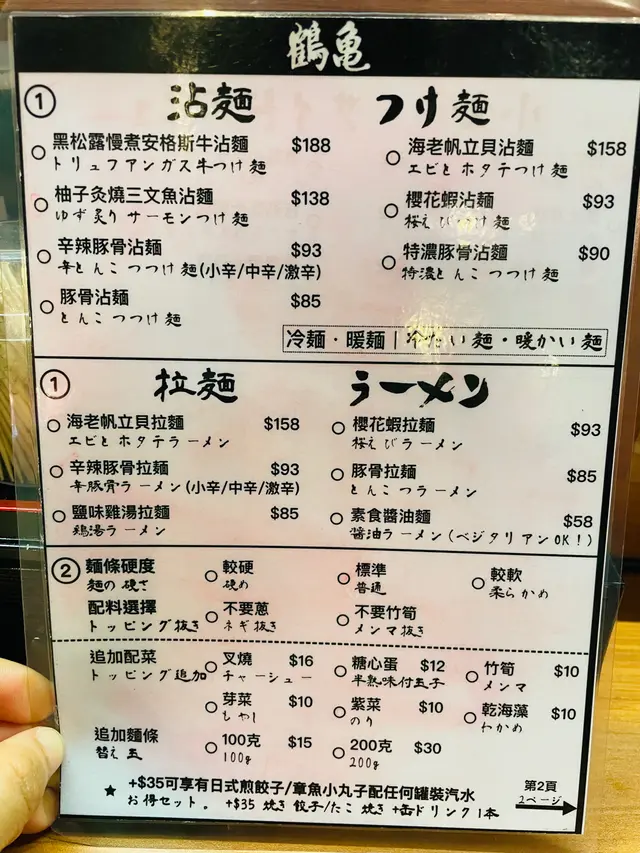 鶴亀
① 沾麵 つけ麵
黑松露慢煮安格斯牛沾麵 $188
トリュフアンガス牛つけ麵
海老帆立貝沾麵 $158
エビとホタテつけ麵
柚子灸燒三文魚沾麵 $138
ゆず炙りサーモンつけ麵
櫻花蝦沾麵 $93
桜えびつけ麵
辛辣豚骨沾麵 $93
辛とんこつつけ麵(小辛/中辛/激辛)
特濃豚骨沾麵 $90
特濃とんこつつけ麵
豚骨沾麵 $85
とんこつつけ麵
冷麵・暖麵|冷たい麵・暖かい麵
① 拉麵 ラーメン
海老帆立貝拉麵 $158
エビとホタテラーメン
櫻花蝦拉麵 $93
桜えびラーメン
辛辣豚骨拉麵 $93
辛豚骨ラーメン(小辛/中辛/激辛)
豚骨拉麵 $85
とんこつラーメン
鹽味雞湯拉麵 $85
鶏湯ラーメン
素食醬油麵 $58
醤油ラーメン(ベジタリアンOK!)
② 麵條硬度 較硬 標準 較軟
麵の硬さ 硬め 普通 柔らかめ
配料選擇 不要蔥 不要竹筍
トッピング抜き ネギ抜き メンマ抜き
追加配菜 叉燒 $16 糖心蛋 $12 竹筍 $10
トッピング追加 チャーシュー 半熟味付玉子 メンマ
芽菜 $10 紫菜 $10 乾海藻 $10
もやし のり わかめ
追加麵條 100克 $15 200克 $30
替え玉 100g 200g
★ +$35可享有日式煎餃子/章魚小丸子配任何罐裝汽水
お得セット。 +$35 焼き餃子/たこ焼き+缶ドリンク1本
第2頁
2ページ